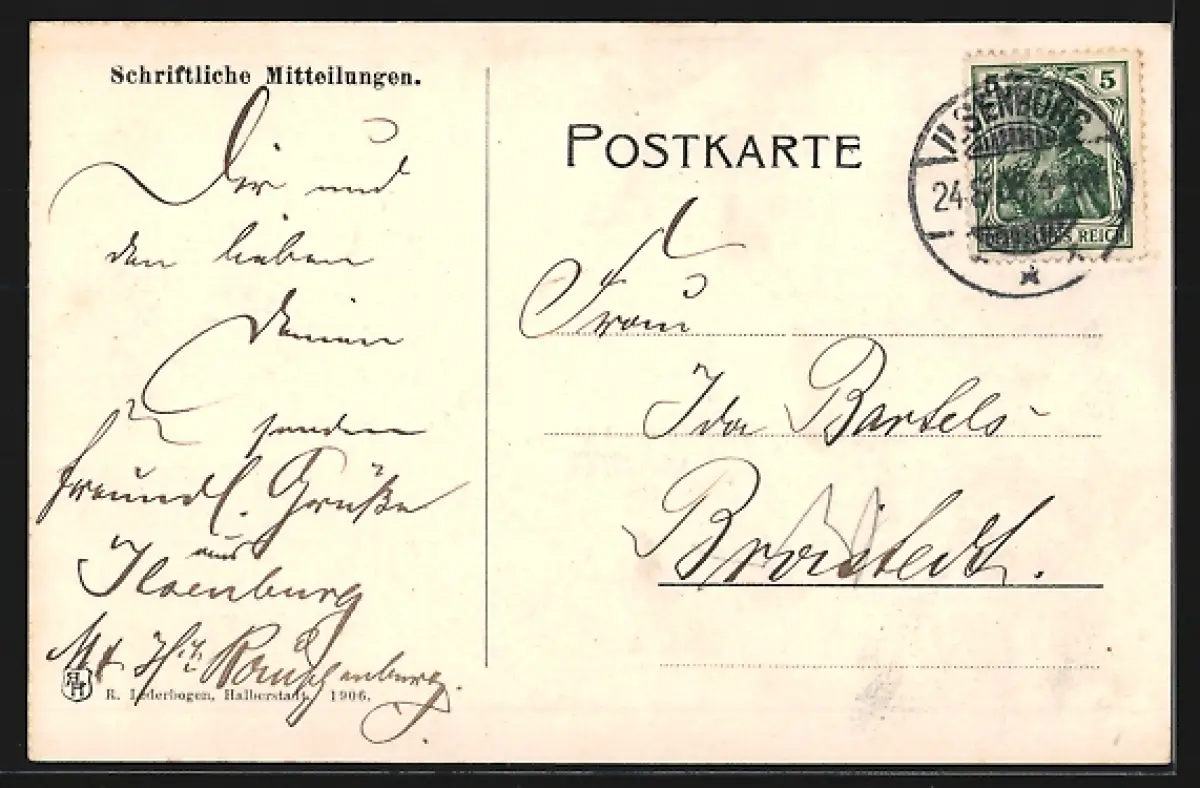 Schriftliche Mitteilungen.
Dir und
den lieben
Deinen
senden
freundl. Grüße
aus
Ilsenburg
Rauschenburg.
R. Lederbogen, Halberstadt, 1906.
POSTKARTE
5 5
DEUTSCHES REICH
ILSENBURG
24.8
Frau
Ida Bartels
Broistedt.